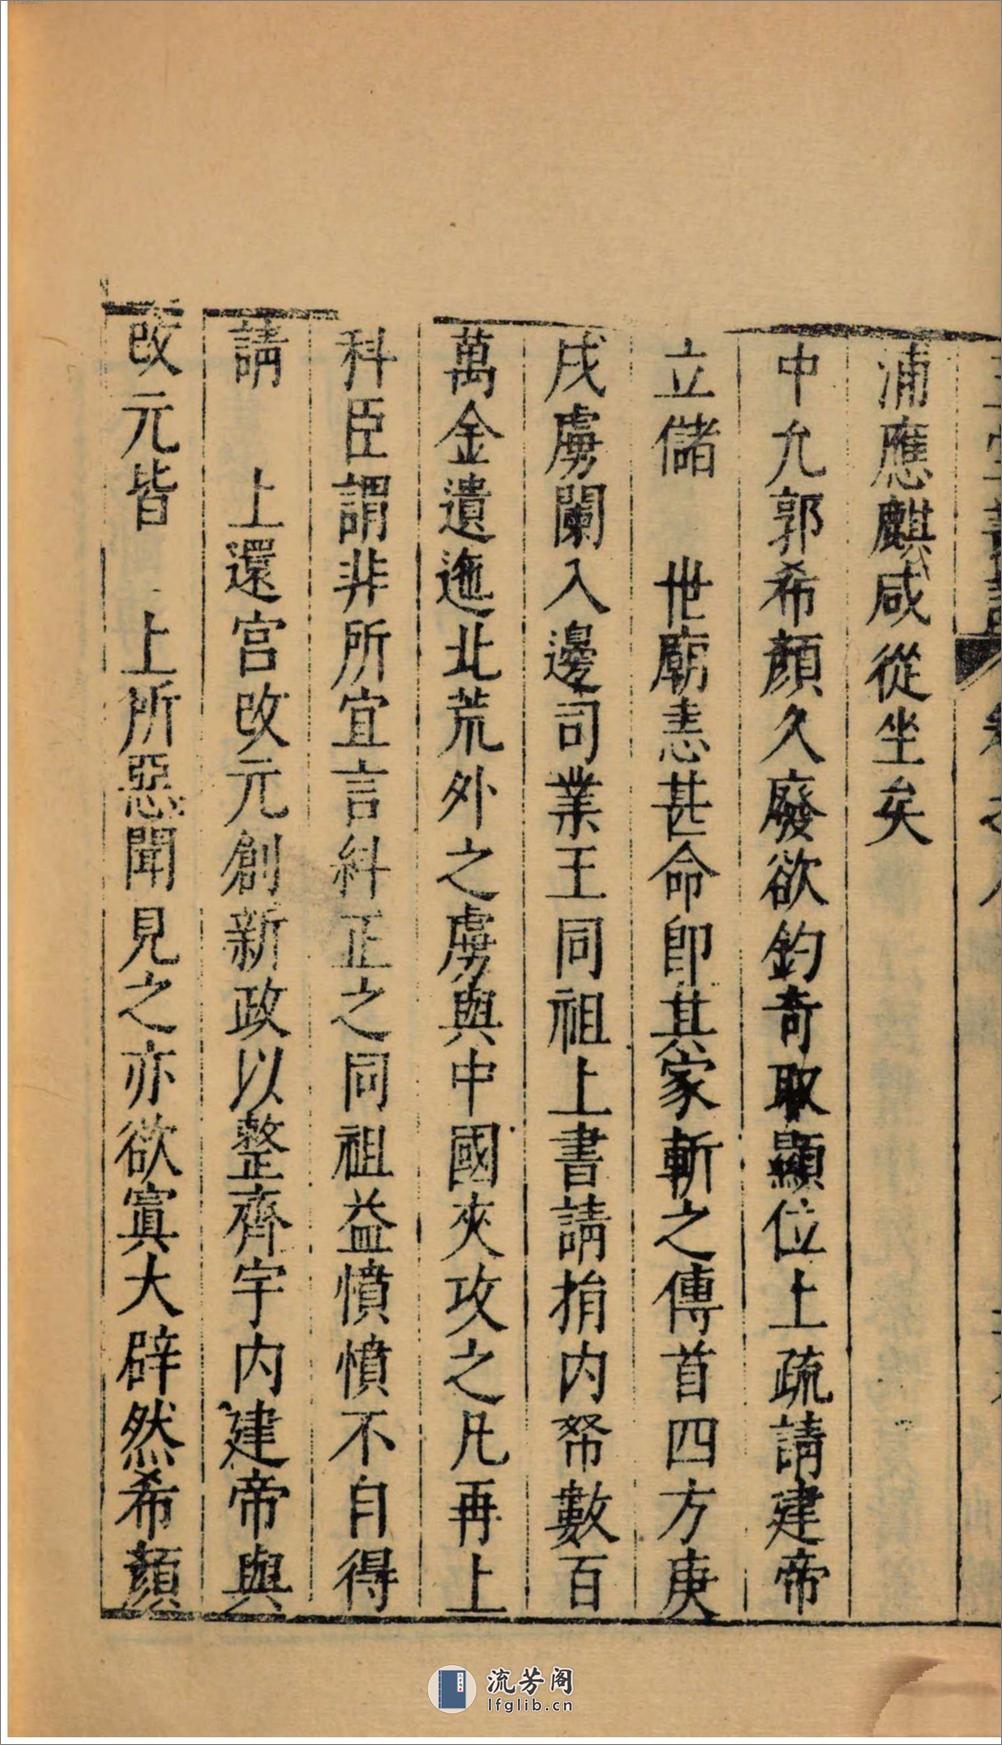 浦應麒咸從坐矣
中允郭希顏久廢欲鈞奇取顯位上疏請建帝
立儲　世廟恚甚命即其家斬之傳首四方庚
戌虜闌入邊司業王同祖上書請捐內帑數百
萬金遺迤北荒外之虜與中國夾攻之凡再上
科臣謂非所宜言糾正之同祖益憤憤不自得
請　上還宮改元創新政以整齊宇內建帝與
改元皆　上所惡聞見之亦欲寘大辟然希顏
流芳阁
lfglib.cn